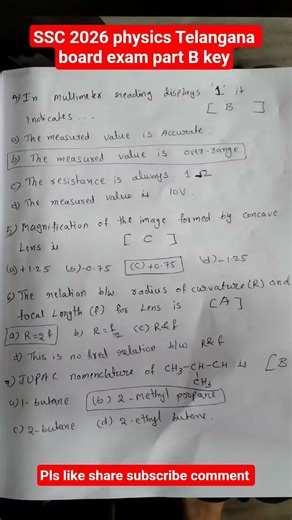 SSC 2026 physics Telangana
board exam part B key
4) In multimeter reading displays '1' it
indicates... [ B ]
a) The measured value is Accurate
b) The measured value is over-range
c) The resistance is always 1 Ω
d) The measured value is 10V.
5) Magnification of the image formed by concave
Lens is [ C ]
(a) +1.25 (b) -0.75 (c) +0.75 (d) -1.25
6) The relation b/w radius of curvature (R) and
focal Length (f) for Lens is [A]
a) R=2f b) R=f/2 (c) R≠f
d) This is no fixed relation b/w R&f
7) IUPAC nomenclature of CH3-CH-CH is [B
CH3
a) 1-butane (b) 2-methyl propane
c) 2-butane (d) 2-ethyl butane.
Pls like share subscribe comment